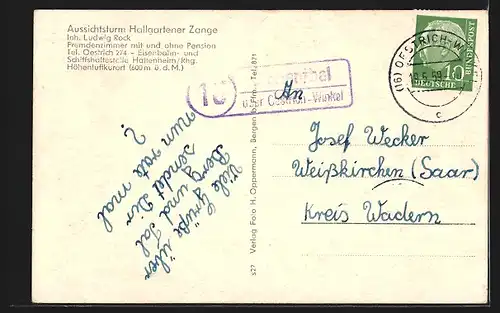 Aussichtsturm Hallgartener Zange
Inh. Ludwig Rock
Fremdenzimmer mit und ohne Pension
Tel. Oestrich 274 – Eisenbahn- und
Schiffshaltestelle Hattenheim/Rhg.
Höhenluftkurort (600 m ü. d. M.)
Viele Grüße über
Berg und Tal
sendet Dir
nun rate mal
?
527 Verlag Foto H. Oppermann, Bergen Tel. 871
(16)
über Oestrich-Winkel
(16) OESTRICH-W
c
DEUTSCHE BUNDESPOST
10
An
Josef Wecker
Weißkirchen (Saar)
Kreis Wadern